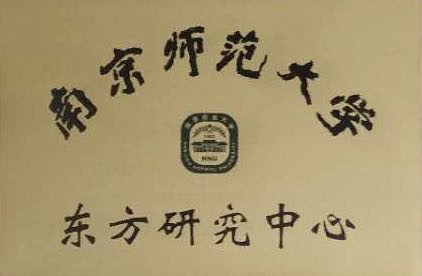 南京师范大学
东方研究中心